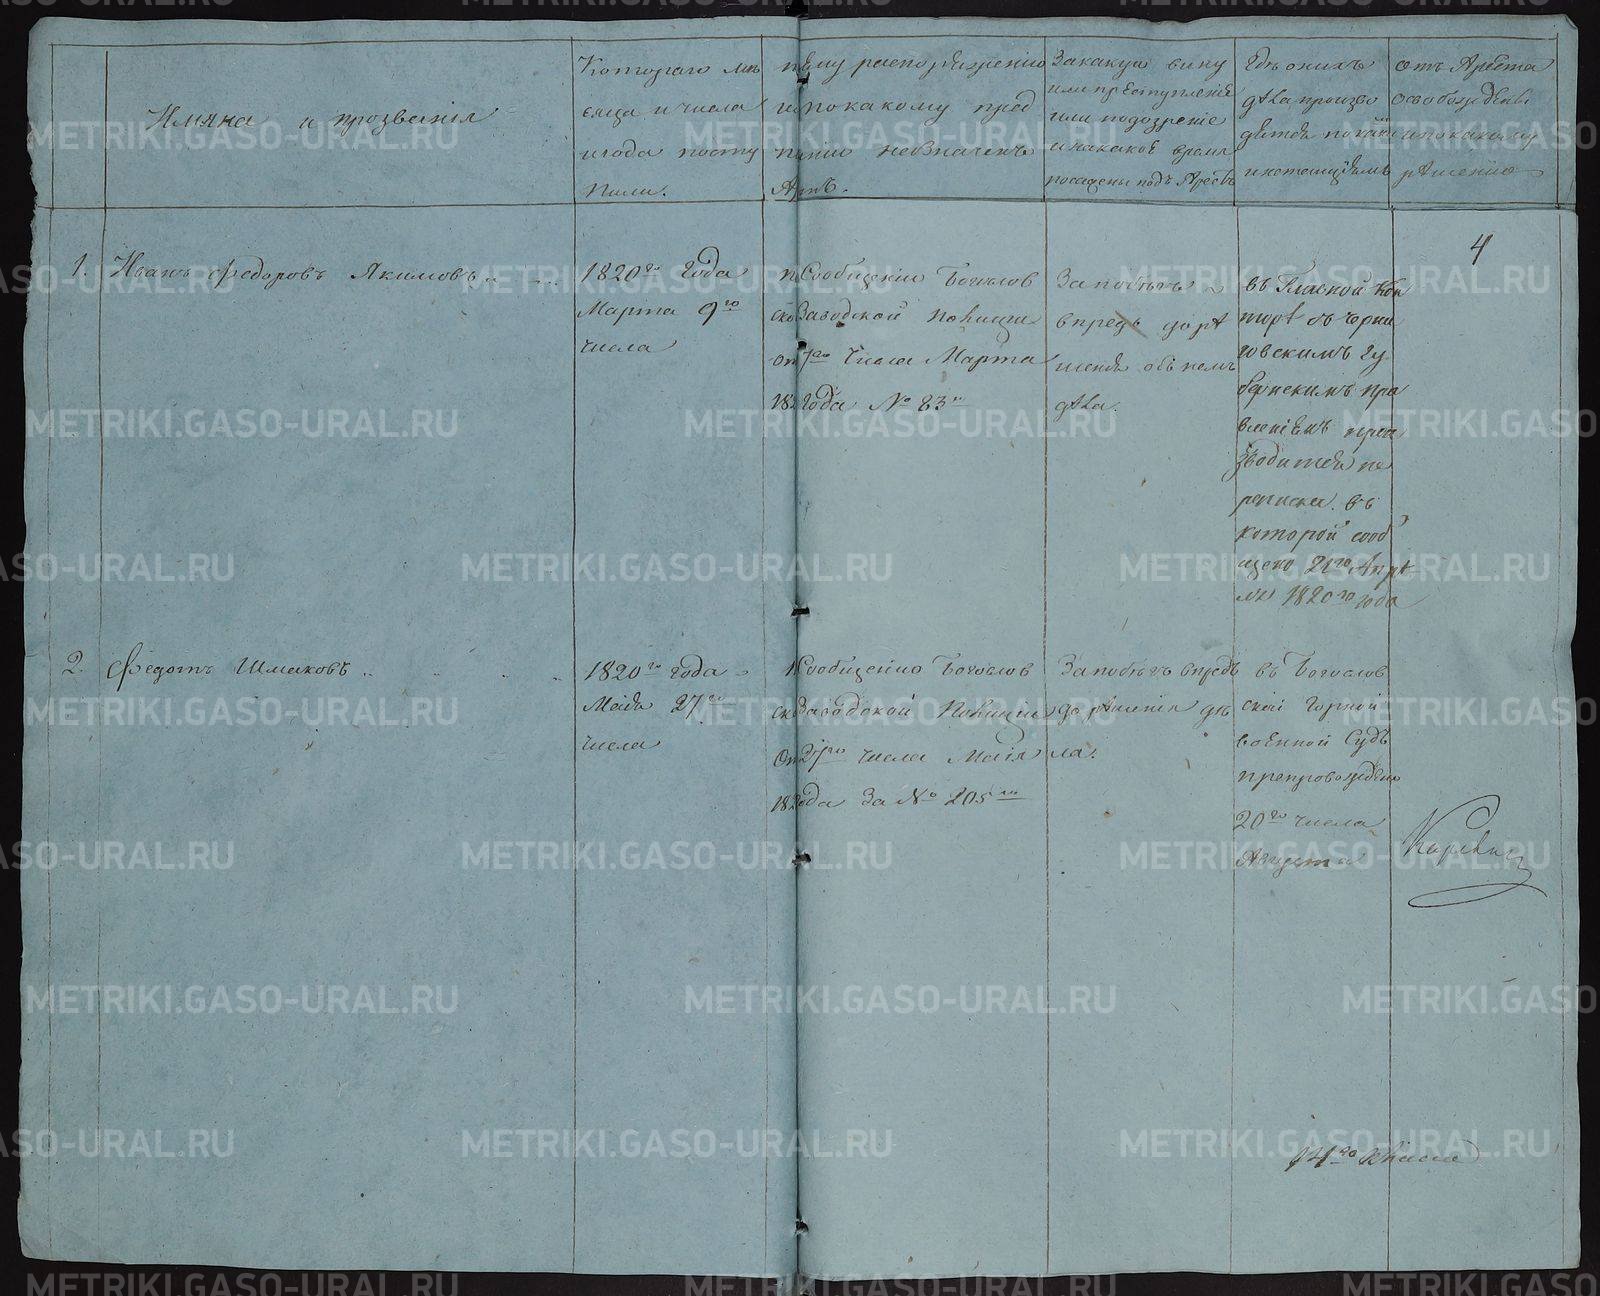 Имяна и прозвания
Котораго мѣ
сяца и числа
и года посту
пили.
чьему распоряжению
и по какому пред
писанию незначенъ
Актъ.
За какую вину
или преступление
или подозрение
и на какое время
посажены подъ Арестъ
Где о нихъ
дѣла произво
дятся
отъ Ареста
освобождены
и по какому
рѣшению
4
1. Иванъ Федоровъ Якимовъ
1820го Года
Марта 9го
числа
Сообщению Богослов
Заводской Полиции
7го Числа Марта
года № 83й
За побегъ
впредь до рѣ
шения объ немъ
дѣла.
въ Главной Кон
торѣ съ Черни
говскимъ Гу
бернскимъ пра
влениемъ прои
зводится пе
реписка въ
которой сооб
щено 21го Апрѣ
ля 1820го года
2. Федотъ Шмаковъ
1820го года
Майя 27го
числа
Сообщению Богослов
Заводской Полиции
27го числа Майя
года За № 205м
За побегъ впредь
до рѣшения дѣ
ла.
въ Богослов
ской Горной
военной Судъ
препровождено
20го числа
Августа
14го класса
METRIKI.GASO-URAL.RU